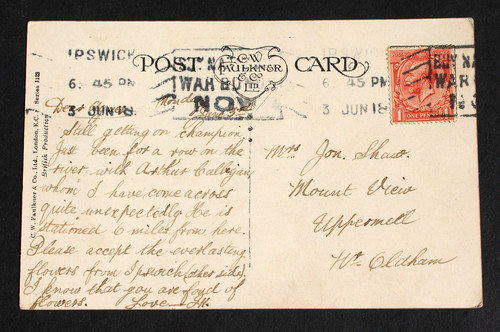 IPSWICH
6. 45 PM
3 JUN 18
BUY NA
WAR BO
NOW
POST CARD
C.W.
FAULKNER
& CO
LTD.
IPSWICH
6. 45 PM
3 JUN 18
BUY NA
WAR B
N
1 ONE PENNY 1
C. W. Faulkner & Co., Ltd., London, E.C. Series 1123
British Production
Dear Monday
Still getting on champion
Just been for a row on the
river with Arthur Calligan
whom I have come across
quite unexpectedly. He is
stationed 6 miles from here.
Please accept the everlasting
flowers from Ipswich (other side)
I know that you are fond of
flowers. Love
Mrs Jon. Shaw.
Mount View
Uppermill
Nr. Oldham